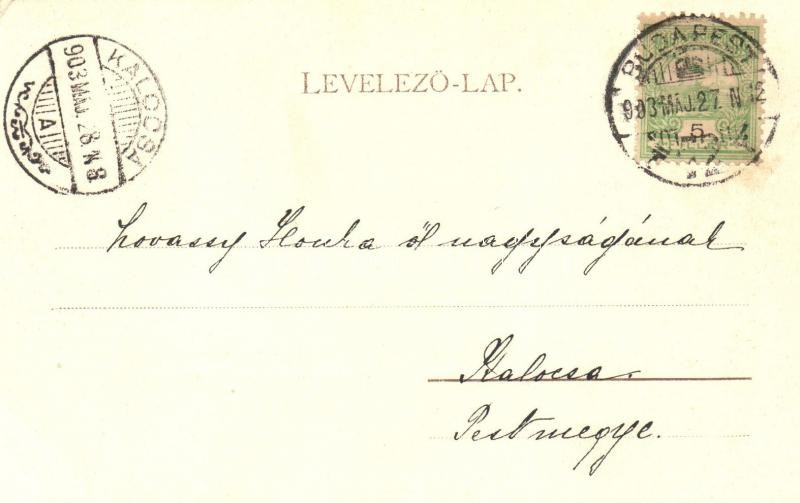 KALOCSA
903 MÁJ. 28 N 8
A
LEVELEZÖ-LAP.
BUDAPEST
903 MÁJ. 27. N 12
5
Lovassy Ilonka öl nagyságának
Kalocsa.
Pestmegye.